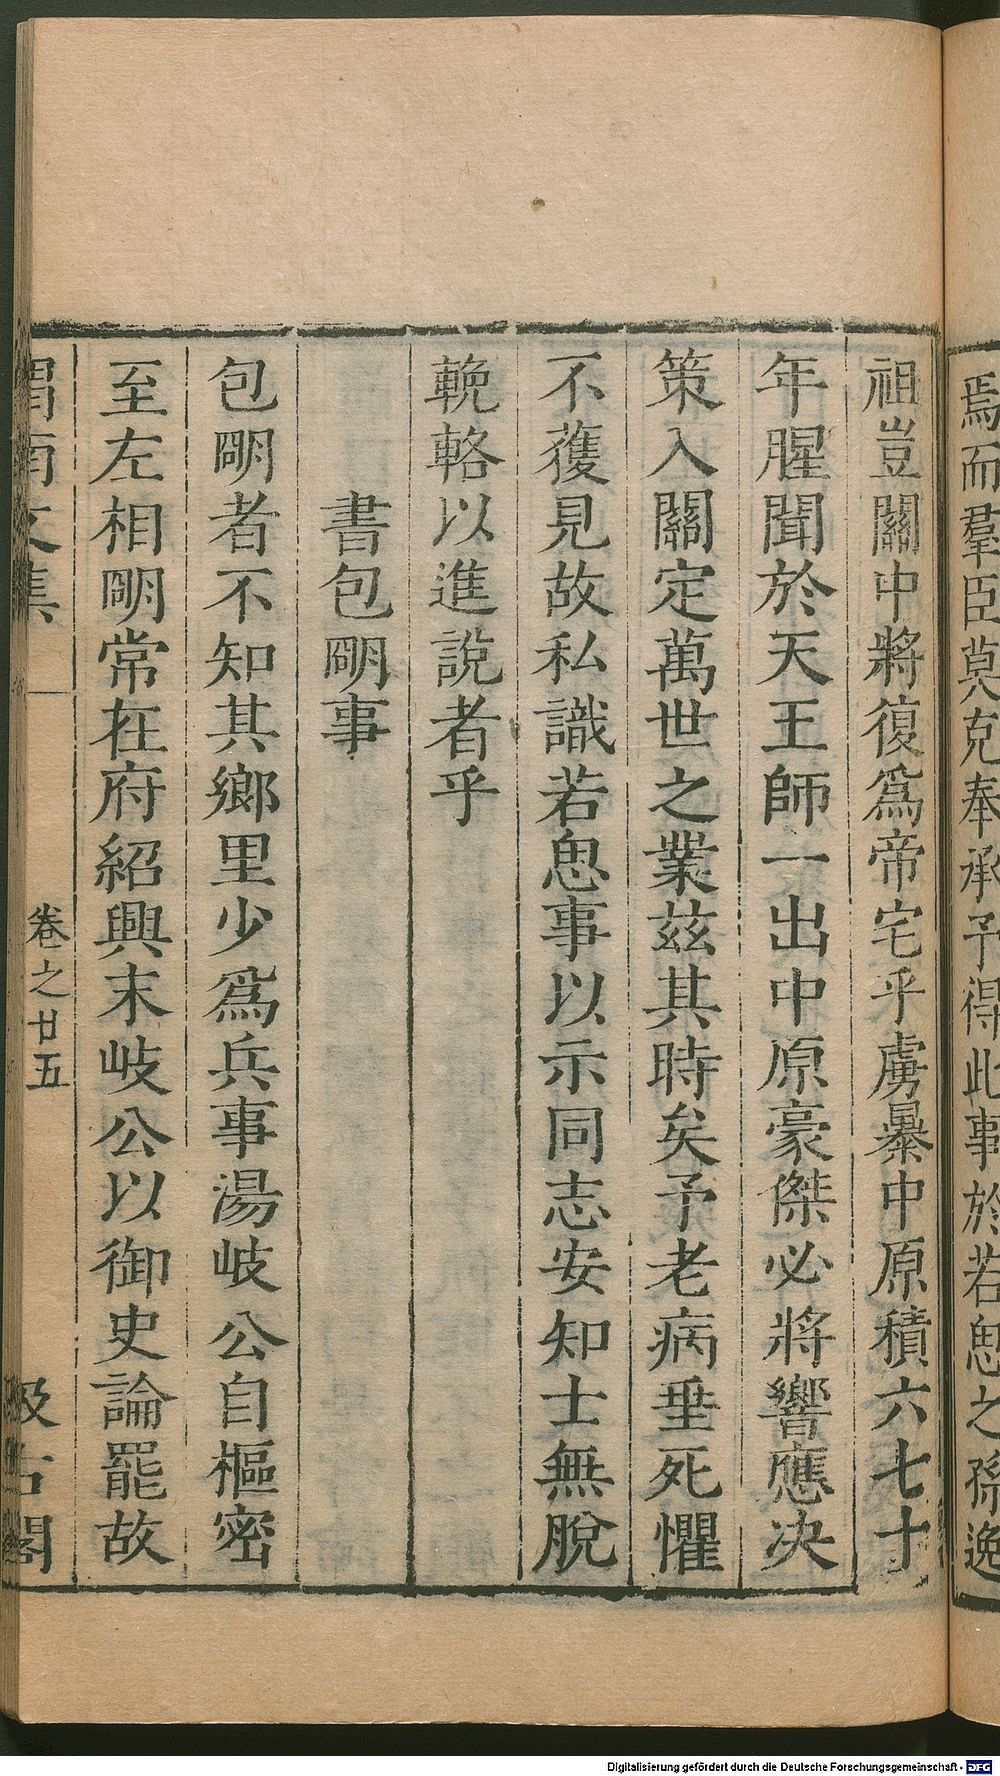 焉而羣臣莫克奉承予得此事於若思之孫逸
祖豈關中將復爲帝宅乎虜暴中原積六七十
年腥聞於天王師一出中原豪傑必將響應决
策入關定萬世之業兹其時矣予老病垂死懼
不獲見故私識若思事以示同志安知士無脫
輓輅以進說者乎
書包明事
包明者不知其鄉里少爲兵事湯岐公自樞密
至左相明常在府紹興末岐公以御史論罷故
渭南文集
卷之廿五
汲古閣
Digitalisierung gefördert durch die Deutsche Forschungsgemeinschaft - DFG